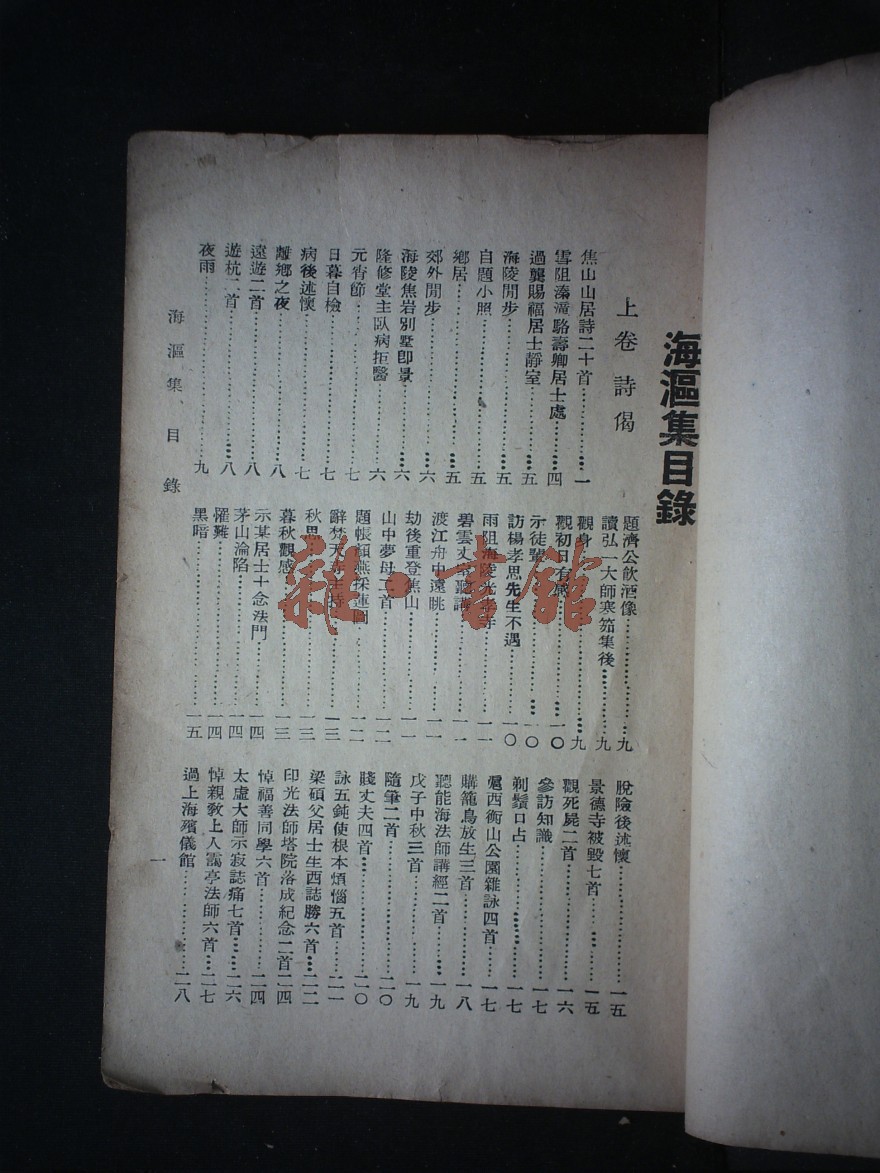 海漚集目錄
上卷 詩偈
焦山山居詩二十首……一
雪阻溱滝駱壽卿居士處……四
過龔賜福居士靜室……五
海陵閒步……五
自題小照……五
鄉居……五
郊外閒步……六
海陵焦岩別墅卽景……六
隆修堂主臥病拒醫……六
元宵節……七
日暮自檢……七
病後述懷……七
離鄉之夜……八
遠遊二首……八
遊杭二首……八
夜雨……九
題濟公飲酒像……九
讀弘一大師寒笳集後……九
觀身……九
觀初日有感……一〇
示徒輩……一〇
訪楊孝思先生不遇……一〇
雨阻海陵光孝寺……一一
碧雲丈室聽講……一一
渡江舟中遠眺……一一
劫後重登焦山……一一
山中夢母二首……一二
題帳額燕採蓮圖……一二
辭梵天寺主持……一三
秋思……一三
暮秋觀感……一三
示某居士十念法門……一四
茅山淪陷……一四
罹難……一四
黑暗……一五
脫險後述懷……一五
景德寺被毀七首……一五
觀死屍二首……一六
參訪知識……一七
剃鬚口占……一七
滬西衡山公園雜詠四首……一七
購籠鳥放生三首……一八
聽能海法師講經二首……一九
戊子中秋三首……一九
隨筆二首……二〇
賤丈夫四首……二〇
詠五鈍使根本煩惱五首……二一
梁碩父居士生西誌勝六首……二二
印光法師塔院落成紀念二首…二四
悼福善同學六首……二四
太虛大師示寂誌痛七首……二六
悼親敎上人靄亭法師六首…二七
過上海殯儀館……二八
海漚集 目錄
一
雜·書館